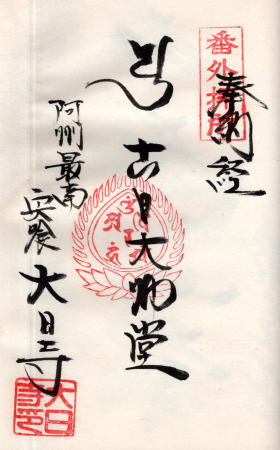 番外拝所
奉納経
大日大師堂
阿州最南
宍喰 大日寺
大日
寺印